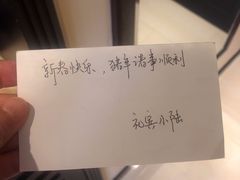 新春快乐，猪年诸事顺利
礼宾小陆